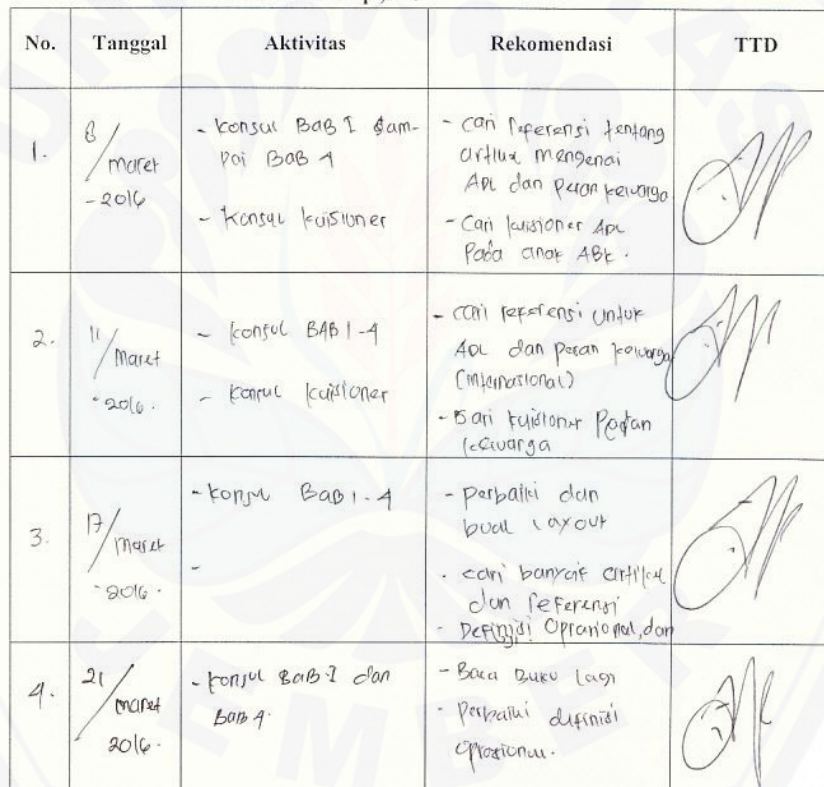 No. Tanggal Aktivitas Rekomendasi TTD
1.
8/maret
-2016
- konsul BAB I sam-
pai BAB 4
- konsul kuisioner
- cari referensi tentang
artikel mengenai
ADL dan peran keluarga
- Cari kuisioner ADL
Pada anak ABK.
2.
11/Maret
-2016.
- konsul BAB 1-4
- konsul kuisioner
- cari referensi untuk
ADL dan peran keluarga
(internasional)
- kuisioner Peran
keluarga
3.
17/Maret
-2016.
- konsul BAB 1-4
-
- perbaiki dan
buat layout
- cari banyak artikel
dan referensi
- Definisi Oprasional, dan
4.
21/maret
2016.
- konsul BAB I dan
BAB 4.
- Baca Buku lagi
- Perbaiki definisi
oprasional.
JEMBER